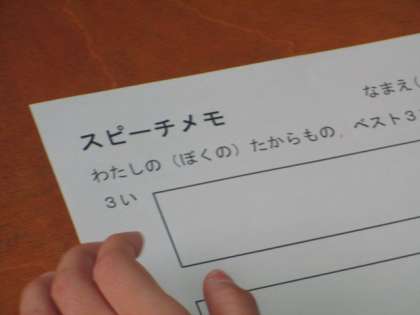 なまえ(
スピーチメモ
わたしの(ぼくの)たからもの、ベスト3
3い